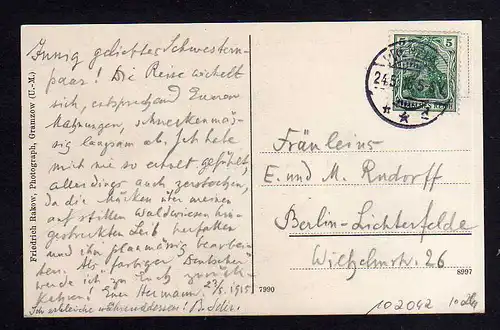 Innig geliebtes Schwestern-
paar! Die Reise wickelt
sich, entsprechend Euren
Mahnungen, schneckenmäs-
sig langsam ab. Ich habe
mich nie so erholt gefühlt,
allerdings auch zerstochen,
da die Mücken über meinen
auf stillen Waldwiesen hin-
gestreckten Leib herfallen
und ihn planmässig bearbei-
ten. Als "farbiger Deutscher"
werde ich zu Euch zurück-
kehren! Euer Hermann. 23/5. 1915
Ich währenddessen!
Friedrich Rakow, Photograph, Gramzow (U.-M.)
7990
5
24.5.
Fräuleins
E. und M. Rudorff
Berlin-Lichterfelde
Wilhelmstr. 26
8997
102042